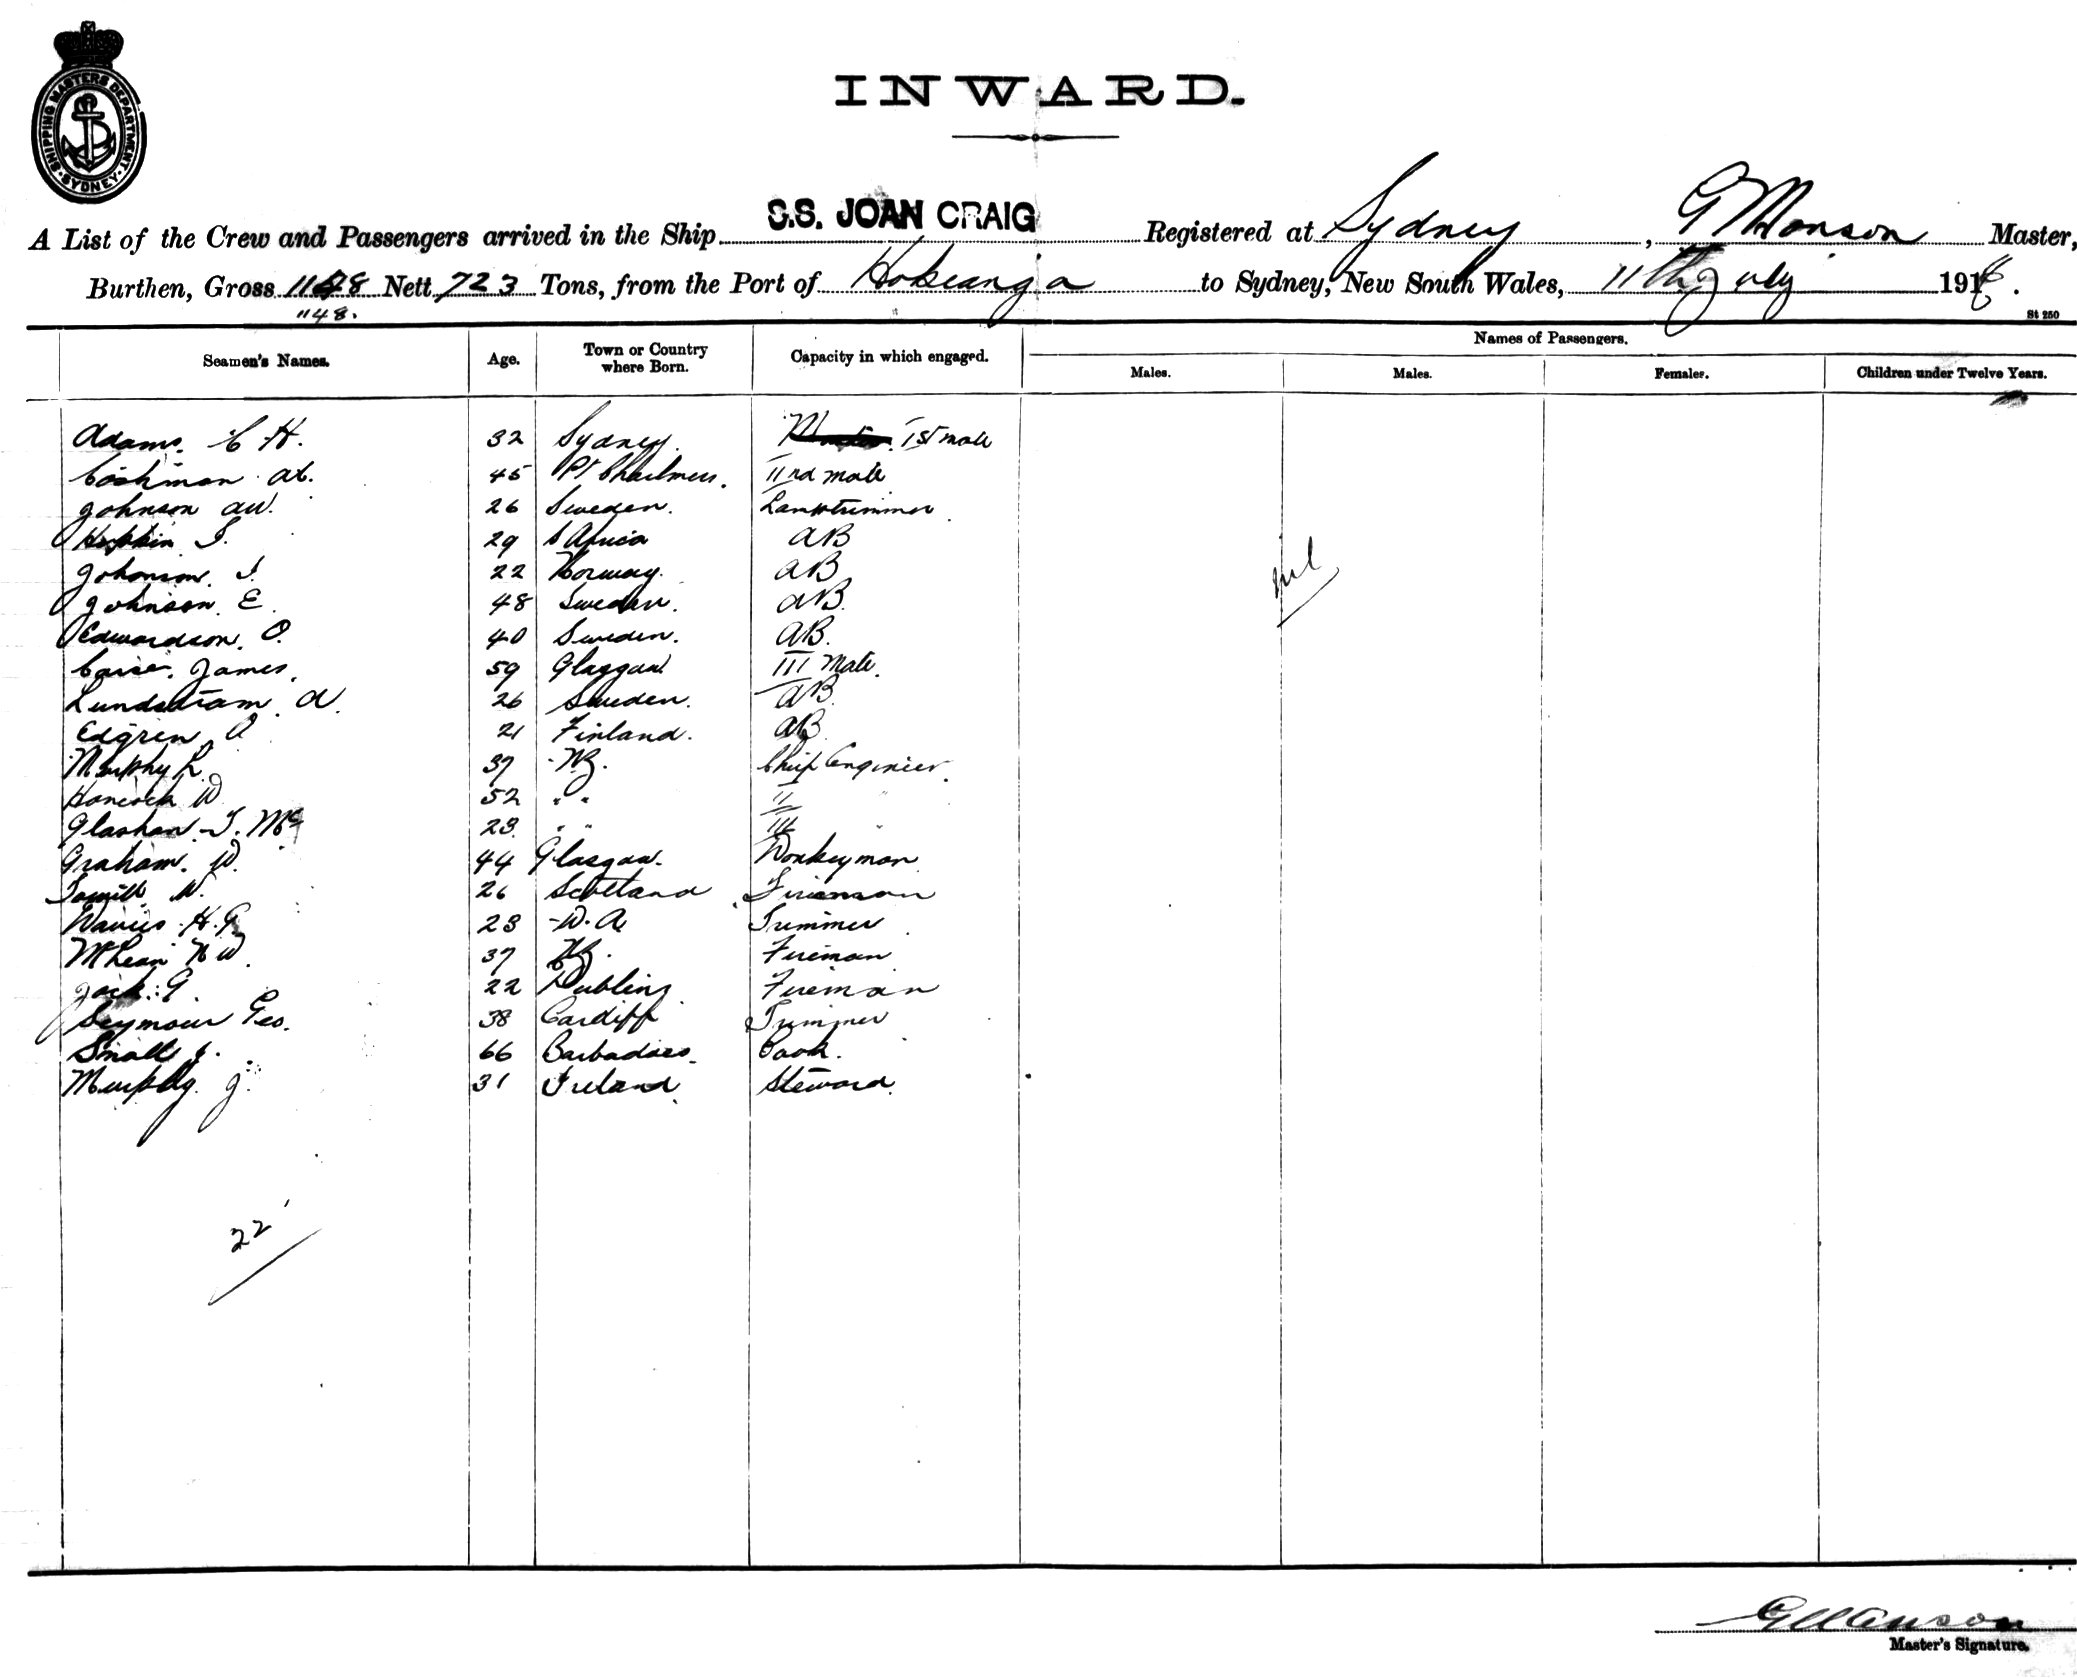 SHIPPING MASTERS DEPARTMENT · SYDNEY ·
INWARD.
A List of the Crew and Passengers arrived in the Ship S.S. JOAN CRAIG Registered at Sydney, G Monson Master,
Burthen, Gross 1148 Nett 723 Tons, from the Port of Hokeanga to Sydney, New South Wales, 11th July 191
1148.
St 250
Seamen's Names. Age. Town or Country where Born. Capacity in which engaged. Names of Passengers.
Males. Males. Females. Children under Twelve Years.
Adams. C H. 32 Sydney. 1st mate
Coshman 45 Pt Chailmers. IInd mate
Johnson AW. 26 Sweden. Lamptrimmer
29 S Africa AB
Johonson. I. 22 Norway. AB
Johnson. E. 48 Sweden. AB.
Edwardson. O. 40 Sweden. AB.
James. 59 Glasgow III Mate.
Lundstram. A. 26 Sweden. AB
Edgren O 21 Finland. AB
Murphy L. 37 NZ. Chief Engineer.
Hancock W 52 " " II "
Glashan T. Mc 23. " " III "
Graham. W. 44 Glasgow. Donkeyman
26 Scotland Fireman
Davies. H. G. 23 W. A. Trimmer
McLean N W. 37 NZ. Fireman
Jack. G. 22 Dubling Fireman
Seymour Geo. 38 Cardiff Trimmer
Small J. 66 Barbadoes. Cook.
Murphy. J. 31 Ireland. Steward.
nil
22
G Monson
Master's Signature.